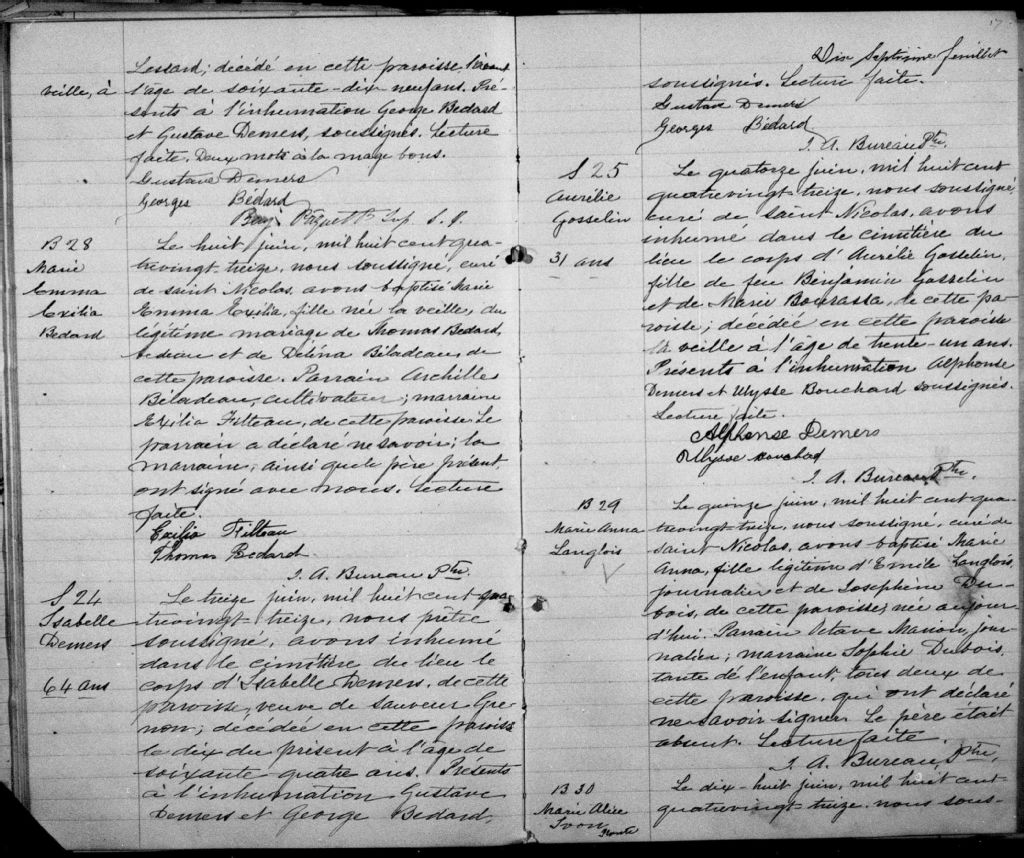 Lessard; décédé en cette paroisse, l'avant
veille, à
l'âge de soixante-dix neuf ans. Pré-
sents à l'inhumation George Bedard
et Gustave Demers, soussignés. Lecture
faite. Deux mots à la marge bons.
Gustave Demers
Georges Bédard
B 28
Marie
Emma
Exilia
Bedard
Le huit juin, mil huit cent qua-
trevingt-treize, nous soussigné, curé
de saint Nicolas, avons baptisé Marie
Emma Exilia, fille née la veille, du
légitime mariage de Thomas Bedard,
bedeau et de Déléna Biladeau, de
cette paroisse. Parrain Archille
Biladeau, cultivateur; marraine
Exilia Filteau, de cette paroisse. Le
parrain a déclaré ne savoir; la
marraine, ainsi que le père présent,
ont signé avec nous. Lecture
faite.
Exilia Filteau
Thomas Bedard
J. A. Bureau Ptre
S 24
Isabelle
Demers
64 ans
Le treize juin, mil huit cent qua-
trevingt-treize, nous prêtre
soussigné, avons inhumé
dans le cimitière du lieu le
corps d'Isabelle Demers, de cette
paroisse, veuve de Sauveur Gre-
non; décédée en cette paroisse
le dix du présent à l'âge de
soixante quatre ans. Présents
à l'inhumation Gustave
Demers et George Bedard,
17
Dix Septième feuillet
soussignés. Lecture faite.
Gustave Demers
Georges Bédard
J. A. Bureau Ptre.
S 25
Aurélie
Gosselin
31 ans
Le quatorze juin, mil huit cent
quatrevingt-treize, nous soussigné,
curé de saint Nicolas, avons
inhumé dans le cimitière du
lieu le corps d'Aurélie Gosselin,
fille de feu Benjamin Gosselin
et de Marie Bourassa, de cette pa-
roisse; décédée en cette paroisse
la veille à l'âge de trente-un ans.
Présents à l'inhumation Alphonse
Demers et Ulysse Bouchard soussignés.
Lecture faite.
Alphonse Demers
Ulysse Bouchard
J. A. Bureau Ptre.
B 29
Marie Anna
Langlois
Le quinze juin, mil huit cent qua-
trevingt-treize, nous soussigné, curé de
saint Nicolas, avons baptisé Marie
Anna, fille légitime d'Emile Langlois,
journalier et de Josephine Du-
bois, de cette paroisse; née aujour-
d'hui. Parrain Octave Marion, jour-
nalier; marraine Sophie Dubois,
tante de l'enfant, tous deux de
cette paroisse, qui ont déclaré
ne savoir signer. Le père était
absent. Lecture faite.
J. A. Bureau Ptre.
B 30
Marie Alice
Le dix-huit juin, mil huit cent
quatrevingt-treize, nous sous-